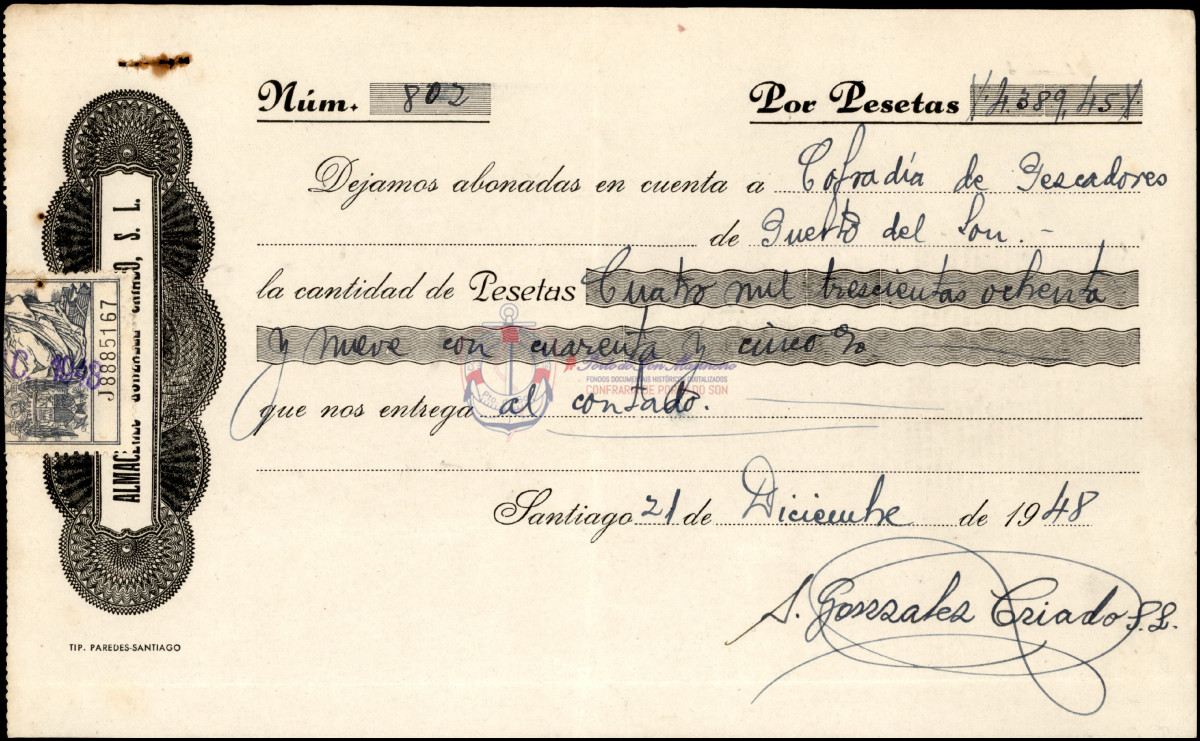 Núm. 802
Por Pesetas 4.389,45
Dejamos abonadas en cuenta a Cofradía de Pescadores
de Puerto del Son.-
la cantidad de Pesetas Cuatro mil trescientas ochenta
y nueve con cuarenta y cinco %
#Porto do Son Mariñeiro
FONDOS DOCUMENTAIS HISTÓRICOS DIXITALIZADOS
CONFRARÍA DE PORTO DO SON
que nos entrega al contado.
Santiago 21 de Diciembre de 1948
S. Gonzalez Criado S.L.
ALMACENES GONZALEZ CRIADO, S. L.
J8885167
1948
TIP. PAREDES-SANTIAGO